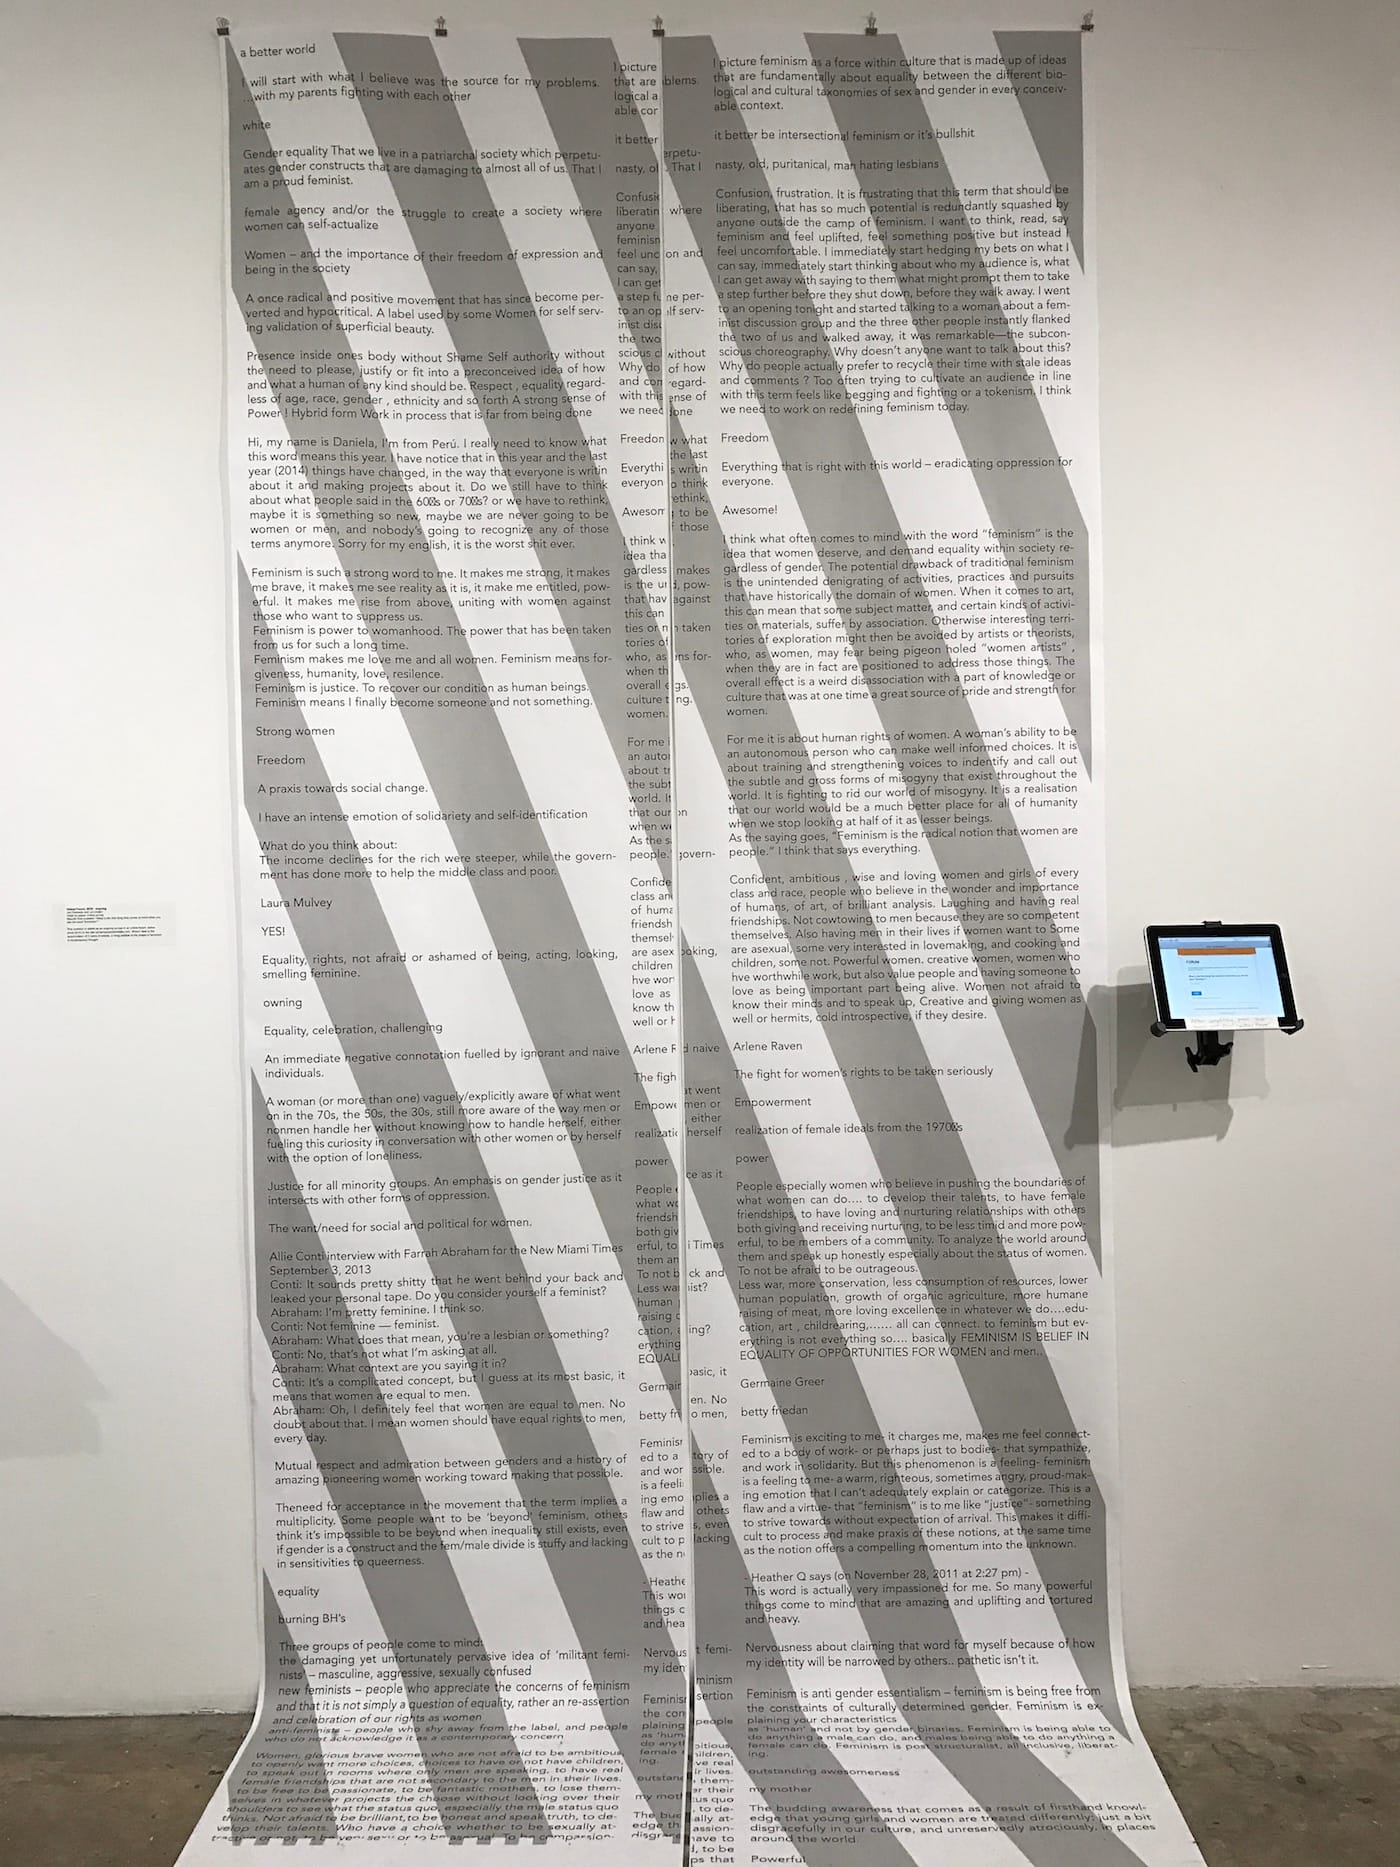 a better world
I will start with what I believe was the source for my problems.
...with my parents fighting with each other
white
Gender equality That we live in a patriarchal society which perpetu-
ates gender constructs that are damaging to almost all of us. That I
am a proud feminist.
female agency and/or the struggle to create a society where
women can self-actualize
Women – and the importance of their freedom of expression and
being in the society
A once radical and positive movement that has since become per-
verted and hypocritical. A label used by some Women for self serv-
ing validation of superficial beauty.
Presence inside ones body without Shame Self authority without
the need to please, justify or fit into a preconceived idea of how
and what a human of any kind should be. Respect , equality regard-
less of age, race, gender , ethnicity and so forth A strong sense of
Power ! Hybrid form Work in process that is far from being done
Hi, my name is Daniela, I'm from Perú. I really need to know what
this word means this year. I have notice that in this year and the last
year (2014) things have changed, in the way that everyone is writin
about it and making projects about it. Do we still have to think
about what people said in the 60s or 70s? or we have to rethink,
maybe it is something so new, maybe we are never going to be
women or men, and nobody's going to recognize any of those
terms anymore. Sorry for my english, it is the worst shit ever.
Feminism is such a strong word to me. It makes me strong, it makes
me brave, it makes me see reality as it is, it make me entitled, pow-
erful. It makes me rise from above, uniting with women against
those who want to suppress us.
Feminism is power to womanhood. The power that has been taken
from us for such a long time.
Feminism makes me love me and all women. Feminism means for-
giveness, humanity, love, resilence.
Feminism is justice. To recover our condition as human beings.
Feminism means I finally become someone and not something.
Strong women
Freedom
A praxis towards social change.
I have an intense emotion of solidariety and self-identification
What do you think about:
The income declines for the rich were steeper, while the govern-
ment has done more to help the middle class and poor.
Laura Mulvey
YES!
Equality, rights, not afraid or ashamed of being, acting, looking,
smelling feminine.
owning
Equality, celebration, challenging
An immediate negative connotation fuelled by ignorant and naive
individuals.
A woman (or more than one) vaguely/explicitly aware of what went
on in the 70s, the 50s, the 30s, still more aware of the way men or
nonmen handle her without knowing how to handle herself, either
fueling this curiosity in conversation with other women or by herself
with the option of loneliness.
Justice for all minority groups. An emphasis on gender justice as it
intersects with other forms of oppression.
The want/need for social and political for women.
Allie Conti interview with Farrah Abraham for the New Miami Times
September 3, 2013
Conti: It sounds pretty shitty that he went behind your back and
leaked your personal tape. Do you consider yourself a feminist?
Abraham: I'm pretty feminine. I think so.
Conti: Not feminine — feminist.
Abraham: What does that mean, you're a lesbian or something?
Conti: No, that's not what I'm asking at all.
Abraham: What context are you saying it in?
Conti: It's a complicated concept, but I guess at its most basic, it
means that women are equal to men.
Abraham: Oh, I definitely feel that women are equal to men. No
doubt about that. I mean women should have equal rights to men,
every day.
Mutual respect and admiration between genders and a history of
amazing pioneering women working toward making that possible.
Theneed for acceptance in the movement that the term implies a
multiplicity. Some people want to be 'beyond' feminism, others
think it's impossible to be beyond when inequality still exists, even
if gender is a construct and the fem/male divide is stuffy and lacking
in sensitivities to queerness.
equality
burning BH's
Three groups of people come to mind:
the damaging yet unfortunately pervasive idea of 'militant femi-
nists' – masculine, aggressive, sexually confused
new feminists – people who appreciate the concerns of feminism
and that it is not simply a question of equality, rather an re-assertion
and celebration of our rights as women
anti-feminists – people who shy away from the label, and people
who do not acknowledge it as a contemporary concern
Women, glorious brave women who are not afraid to be ambitious,
to openly want more choices, choices to have or not have children,
to speak out in rooms where only men are speaking, to have real
female friendships that are not secondary to the men in their lives.
to be free to be passionate, to be fantastic mothers, to lose them-
selves in whatever projects the choose without looking over their
shoulders to see what the status quo especially the male status quo
thinks. Not afraid to be brilliant, to be honest and speak truth, to de-
velop their talents. Who have a choice whether to be sexually at-
tractive or not, to be very sexy or to be asexual. To be compassion-
I picture feminism as a force within culture that is made up of ideas
that are fundamentally about equality between the different bio-
logical and cultural taxonomies of sex and gender in every conceiv-
able context.
it better be intersectional feminism or it's bullshit
nasty, old, puritanical, man hating lesbians
Confusion, frustration. It is frustrating that this term that should be
liberating, that has so much potential is redundantly squashed by
anyone outside the camp of feminism. I want to think, read, say
feminism and feel uplifted, feel something positive but instead I
feel uncomfortable. I immediately start hedging my bets on what I
can say, immediately start thinking about who my audience is, what
I can get away with saying to them what might prompt them to take
a step further before they shut down, before they walk away. I went
to an opening tonight and started talking to a woman about a fem-
inist discussion group and the three other people instantly flanked
the two of us and walked away, it was remarkable—the subcon-
scious choreography. Why doesn't anyone want to talk about this?
Why do people actually prefer to recycle their time with stale ideas
and comments ? Too often trying to cultivate an audience in line
with this term feels like begging and fighting or a tokenism. I think
we need to work on redefining feminism today.
Freedom
Everything that is right with this world – eradicating oppression for
everyone.
Awesome!
I think what often comes to mind with the word "feminism" is the
idea that women deserve, and demand equality within society re-
gardless of gender. The potential drawback of traditional feminism
is the unintended denigrating of activities, practices and pursuits
that have historically the domain of women. When it comes to art,
this can mean that some subject matter, and certain kinds of activi-
ties or materials, suffer by association. Otherwise interesting terri-
tories of exploration might then be avoided by artists or theorists,
who, as women, may fear being pigeon holed "women artists" ,
when they are in fact are positioned to address those things. The
overall effect is a weird disassociation with a part of knowledge or
culture that was at one time a great source of pride and strength for
women.
For me it is about human rights of women. A woman's ability to be
an autonomous person who can make well informed choices. It is
about training and strengthening voices to indentify and call out
the subtle and gross forms of misogyny that exist throughout the
world. It is fighting to rid our world of misogyny. It is a realisation
that our world would be a much better place for all of humanity
when we stop looking at half of it as lesser beings.
As the saying goes, "Feminism is the radical notion that women are
people." I think that says everything.
Confident, ambitious , wise and loving women and girls of every
class and race, people who believe in the wonder and importance
of humans, of art, of brilliant analysis. Laughing and having real
friendships. Not cowtowing to men because they are so competent
themselves. Also having men in their lives if women want to Some
are asexual, some very interested in lovemaking, and cooking and
children, some not. Powerful women. creative women, women who
hve worthwhile work, but also value people and having someone to
love as being important part being alive. Women not afraid to
know their minds and to speak up, Creative and giving women as
well or hermits, cold introspective, if they desire.
Arlene Raven
The fight for women's rights to be taken seriously
Empowerment
realization of female ideals from the 1970s
power
People especially women who believe in pushing the boundaries of
what women can do.... to develop their talents, to have female
friendships, to have loving and nurturing relationships with others
both giving and receiving nurturing, to be less timid and more pow-
erful, to be members of a community. To analyze the world around
them and speak up honestly especially about the status of women.
To not be afraid to be outrageous.
Less war, more conservation, less consumption of resources, lower
human population, growth of organic agriculture, more humane
raising of meat, more loving excellence in whatever we do....edu-
cation, art , childrearing,...... all can connect. to feminism but ev-
erything is not everything so.... basically FEMINISM IS BELIEF IN
EQUALITY OF OPPORTUNITIES FOR WOMEN and men..
Germaine Greer
betty friedan
Feminism is exciting to me- it charges me, makes me feel connect-
ed to a body of work- or perhaps just to bodies- that sympathize,
and work in solidarity. But this phenomenon is a feeling- feminism
is a feeling to me- a warm, righteous, sometimes angry, proud-mak-
ing emotion that I can't adequately explain or categorize. This is a
flaw and a virtue- that "feminism" is to me like "justice"- something
to strive towards without expectation of arrival. This makes it diffi-
cult to process and make praxis of these notions, at the same time
as the notion offers a compelling momentum into the unknown.
- Heather Q says (on November 28, 2011 at 2:27 pm) -
This word is actually very impassioned for me. So many powerful
things come to mind that are amazing and uplifting and tortured
and heavy.
Nervousness about claiming that word for myself because of how
my identity will be narrowed by others.. pathetic isn't it.
Feminism is anti gender essentialism – feminism is being free from
the constraints of culturally determined gender. Feminism is ex-
plaining your characteristics
as 'human' and not by gender binaries. Feminism is being able to
do anything a male can do, and males being able to do anything a
female can do. Feminism is post structuralist, all inclusive, liberat-
ing.
outstanding awesomeness
my mother
The budding awareness that comes as a result of firsthand knowl-
edge that young girls and women are treated differently; just a bit
disgracefully in our culture, and unreservedly atrociously, in places
around the world
Powerful